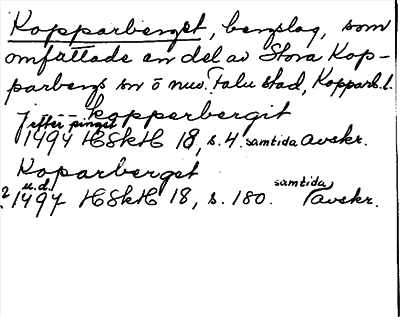 Kopparberget, bergslag, som
omfattade en del av Stora Kop-
parbergs sn o nuv. Falu stad, Kopparb. l.
j -- kopparbergit
efter pingst
1494 HSkH 18, s. 4. samtida avskr.
Koparberget
u.d. samtida
? 1497 HSkH 18, s. 180. avskr.